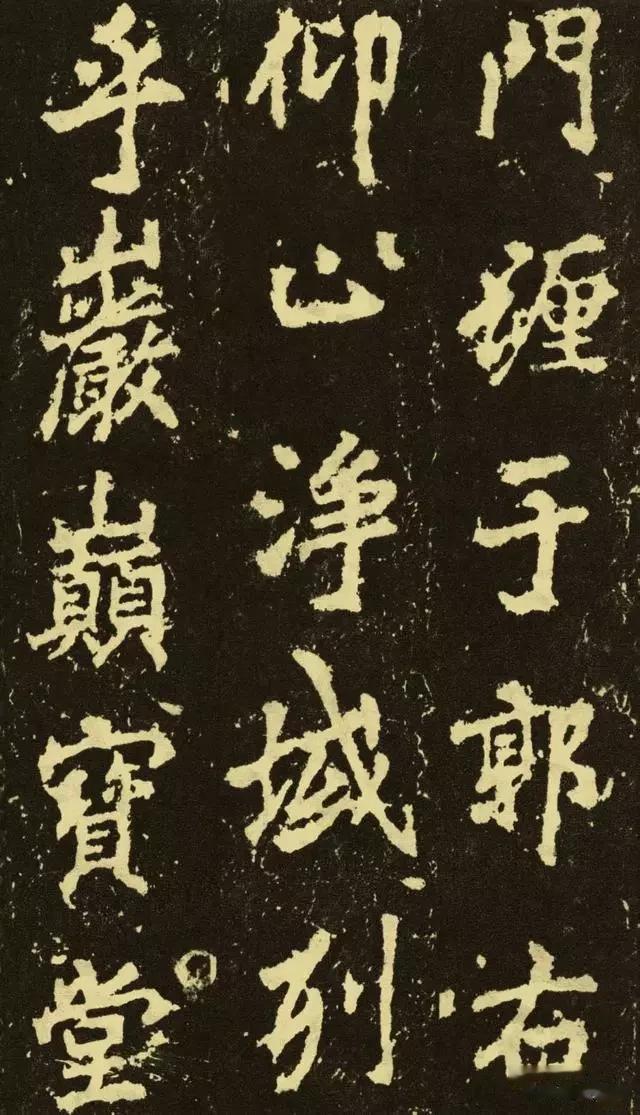 門纏于郭右
仰止净域列
乎巖巔寶堂